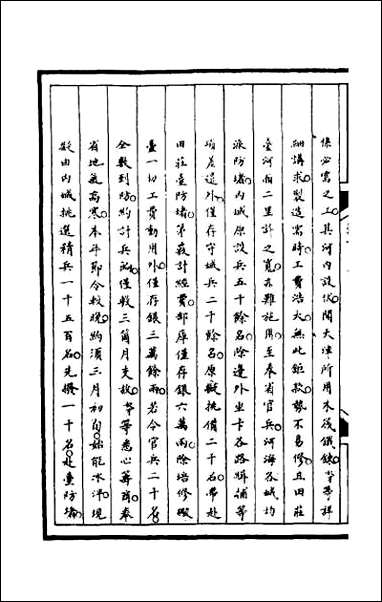 係必需之工具河內設伏聞天津所用木筏鐵鍊等等祥
細講求製造需時工費浩大無此鉅款勢不易修且田莊
臺河面二里許之寬亦難施用至奉省官兵河海各城均
派防堵內城原設兵五十餘名除邊外坐卡各路緝捕等
項差遣外僅存守城兵二十餘名原擬挑備二千名帶赴
田莊臺防堵第截計經費部庫僅存銀六萬兩除培修礮
臺一切工費動用外僅存銀三萬餘兩若令官兵二十名
全數到防約計兵餉僅敷三箇月支放等等悉心籌酌奉
省地氣高寒本年節令較晚約須三月初旬始能冰泮現
擬由內城挑選精兵一十五百名先撥一十名赴臺防堵